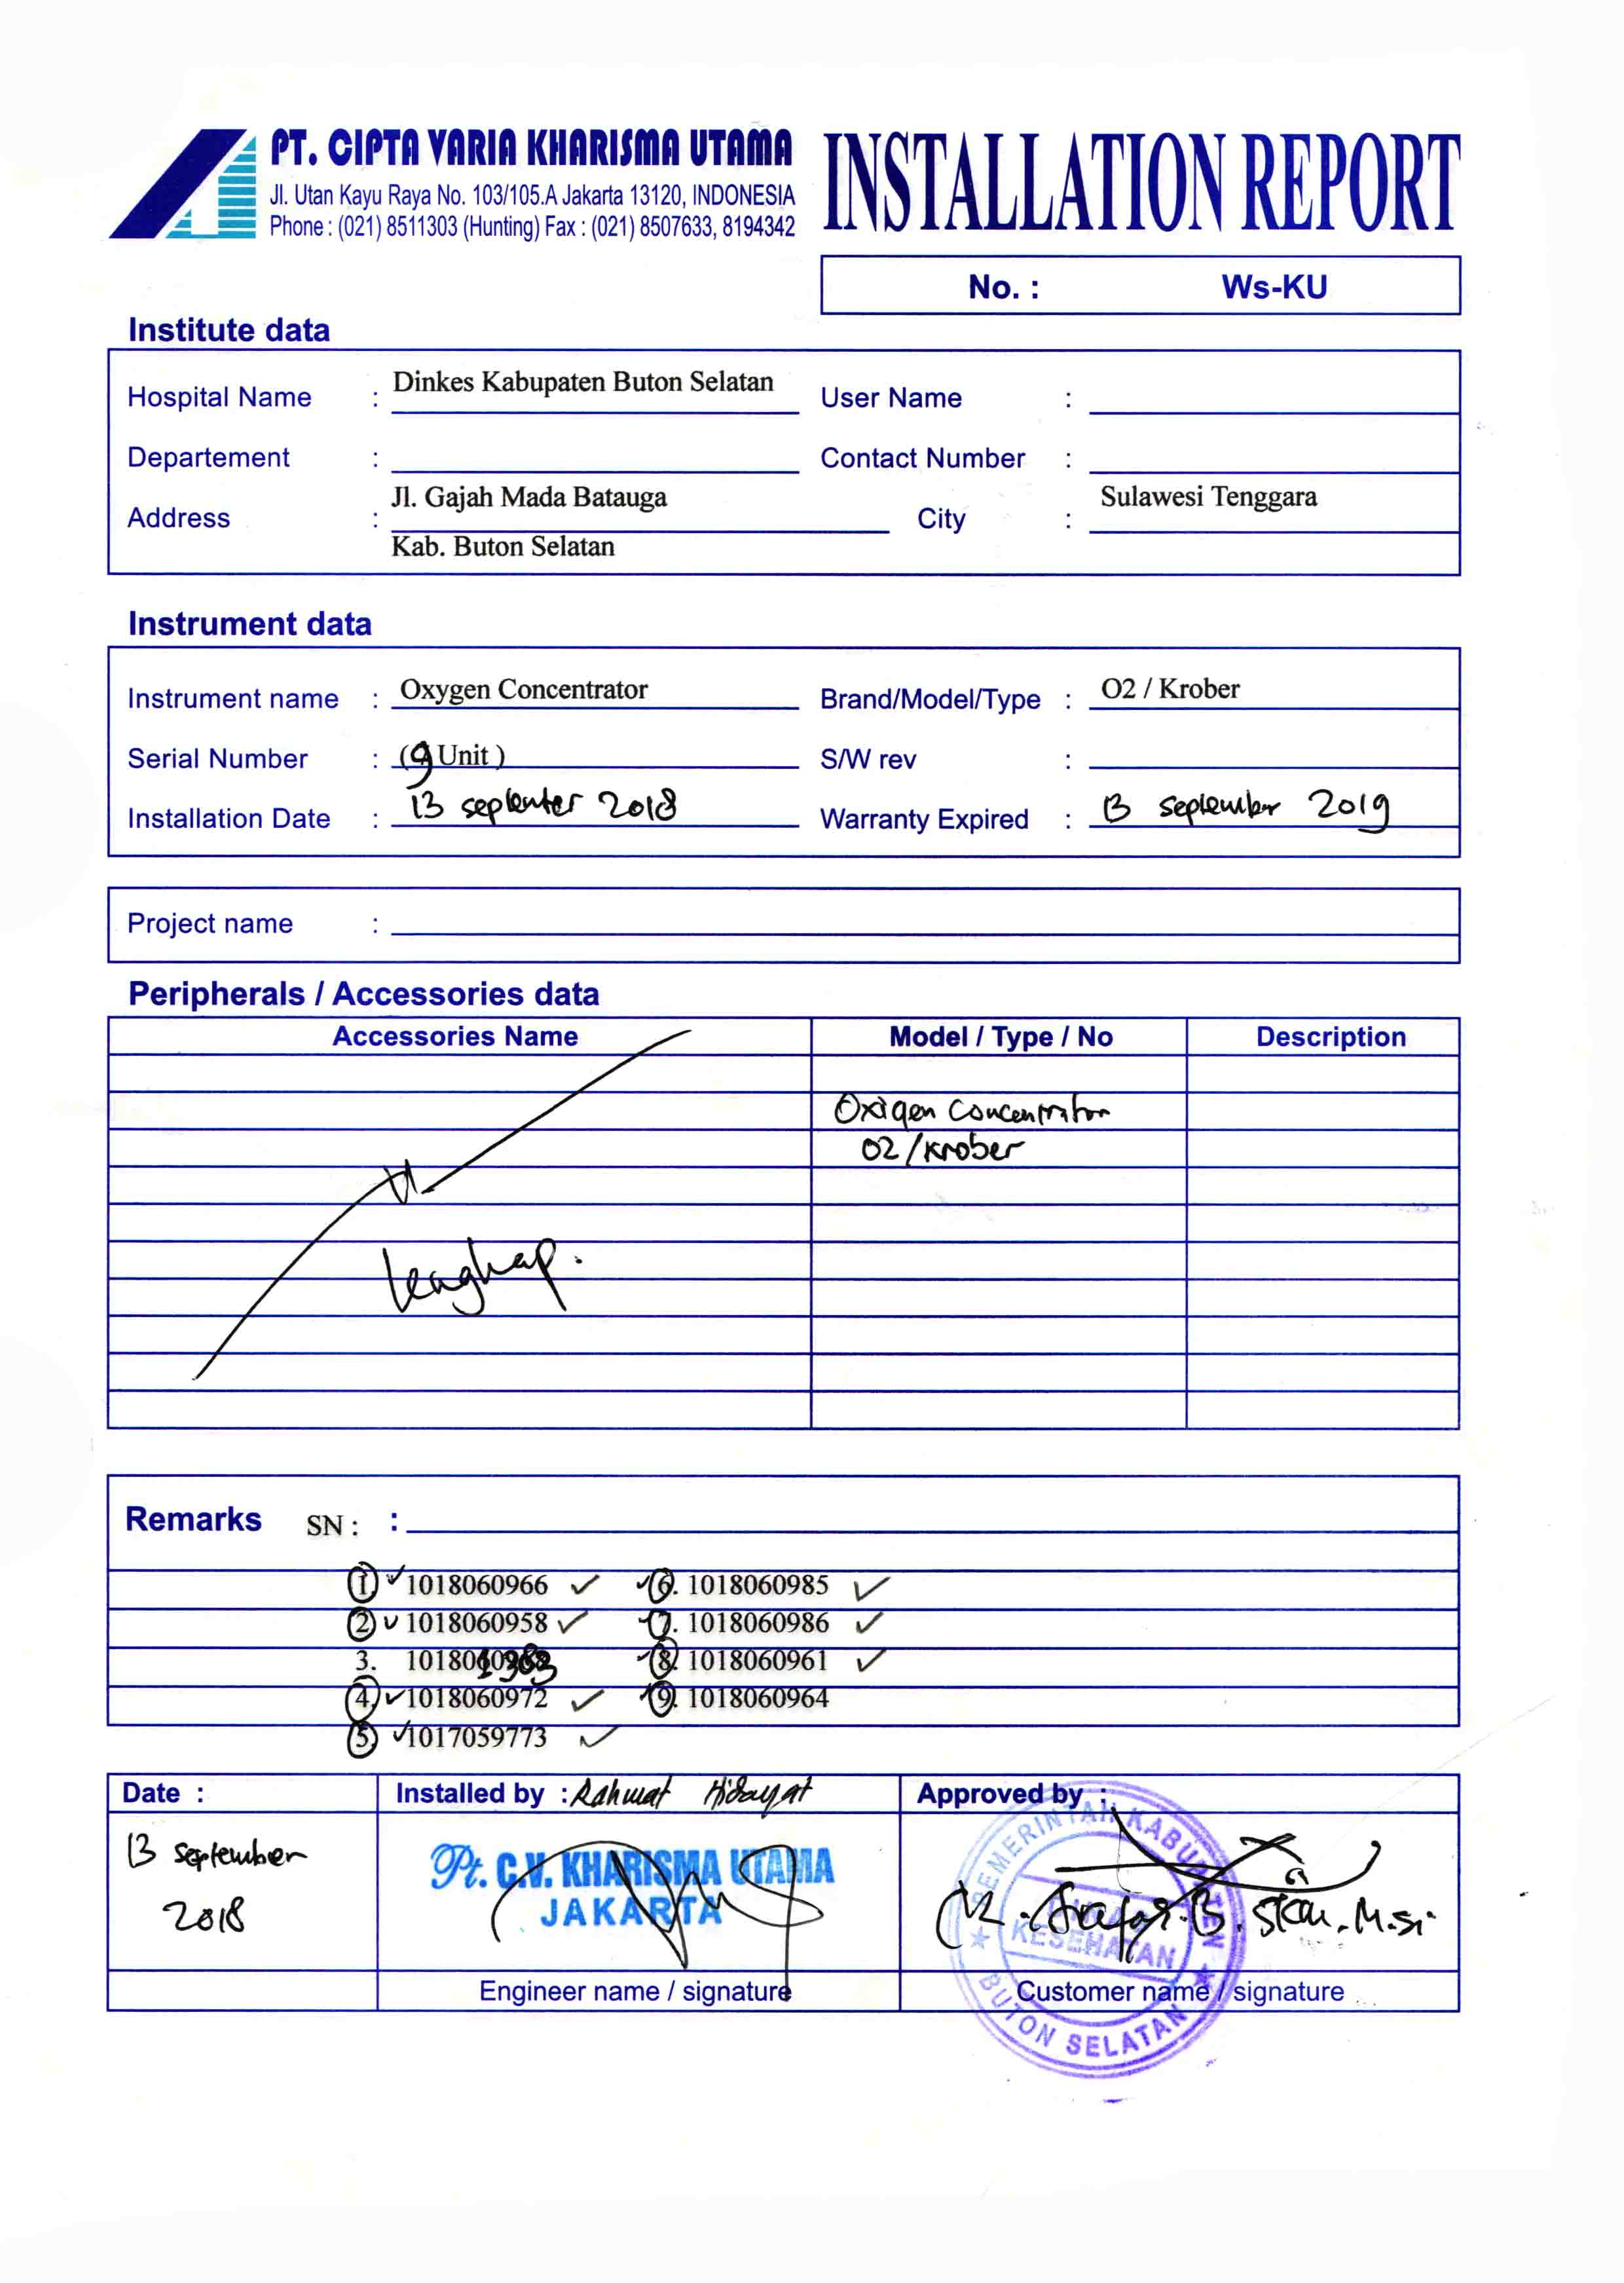 PT. CIPTA VARIA KHARISMA UTAMA
Jl. Utan Kayu Raya No. 103/105.A Jakarta 13120, INDONESIA
Phone : (021) 8511303 (Hunting) Fax : (021) 8507633, 8194342
INSTALLATION REPORT
No. : Ws-KU
Institute data
Hospital Name : Dinkes Kabupaten Buton Selatan User Name :
Departement : Contact Number :
Address : Jl. Gajah Mada Batauga City : Sulawesi Tenggara
Kab. Buton Selatan
Instrument data
Instrument name : Oxygen Concentrator Brand/Model/Type : O2 / Krober
Serial Number : (9 Unit ) S/W rev :
Installation Date : 13 September 2018 Warranty Expired : 13 September 2019
Project name :
Peripherals / Accessories data
Accessories Name Model / Type / No Description
Oxigen Concentrator
O2/Krober
lengkap.
Remarks SN : :
1. ✓ 1018060966 ✓ ✓ 6. 1018060985 ✓
2 ✓ 1018060958 ✓ ✓ 7. 1018060986 ✓
3. ✓ 8. 1018060961 ✓
4. ✓ 1018060972 ✓ ✓ 9. 1018060964
5. ✓ 1017059773 ✓
Date : Installed by : Rahmat Hidayat Approved by :
13 September
2018
Pt. C.V. KHARISMA UTAMA
JAKARTA
PEMERINTAH KABUPATEN
DINAS
KESEHATAN
BUTON SELATAN
SKM. M.Si
Engineer name / signature Customer name / signature